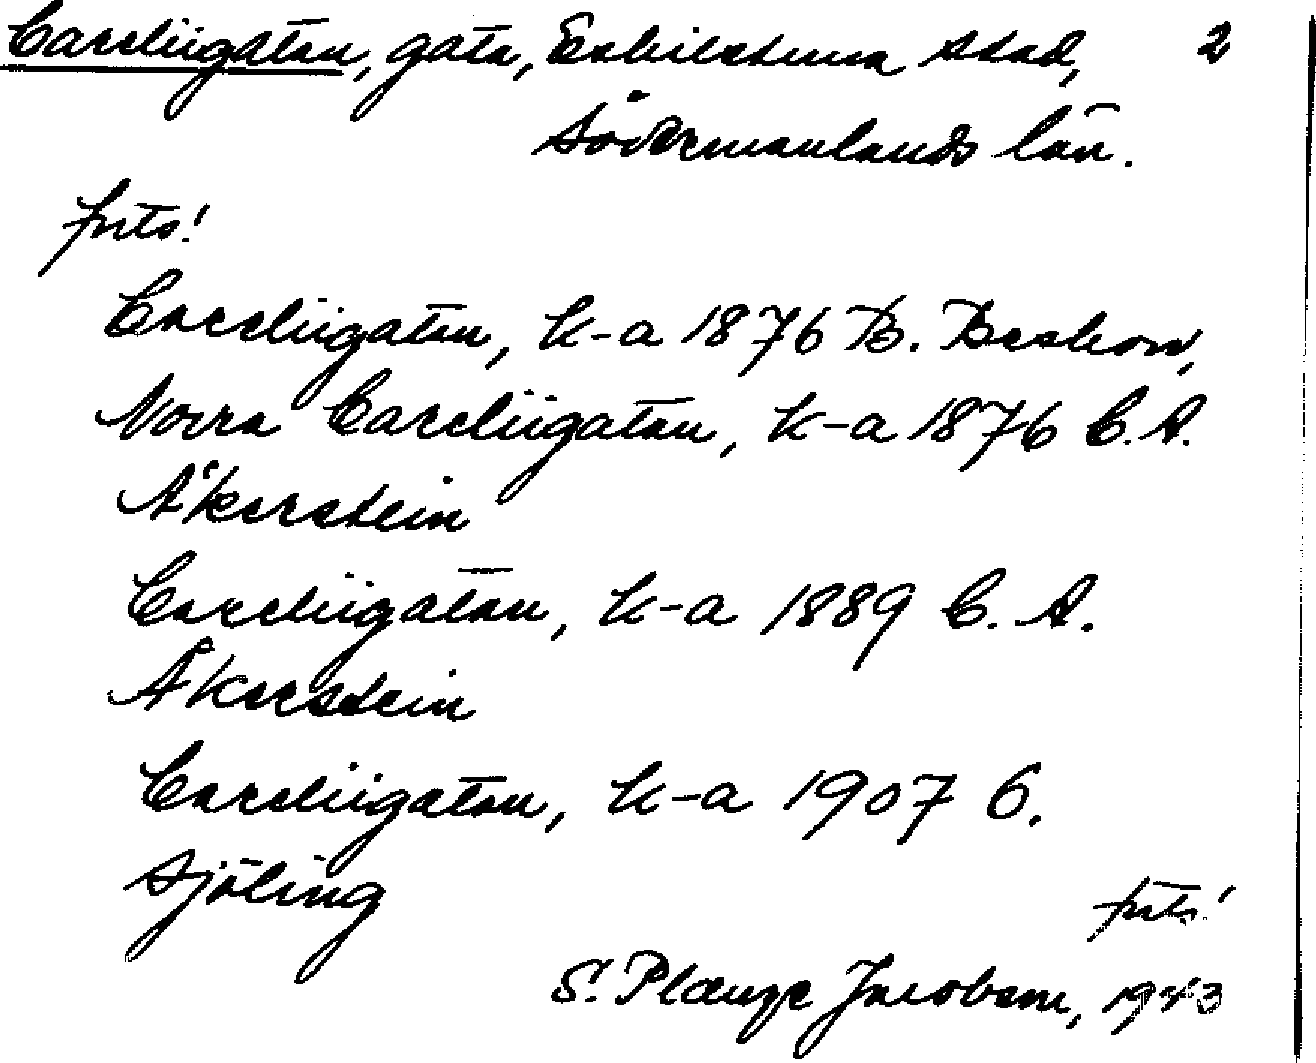 Careliigatan, gata, Eskilstuna stad, 2
Södermanlands län.
forts!
Careliigatan, k-a 1876 B. Beskow,
Norra Careliigatan, k-a 1876 C.A.
Åkerstein
Careliigatan, k-a 1889 C. A.
Åkerstein
Careliigatan, k-a 1907 G.
Sjöling
forts!
S. Plænge Jacobson, 1943